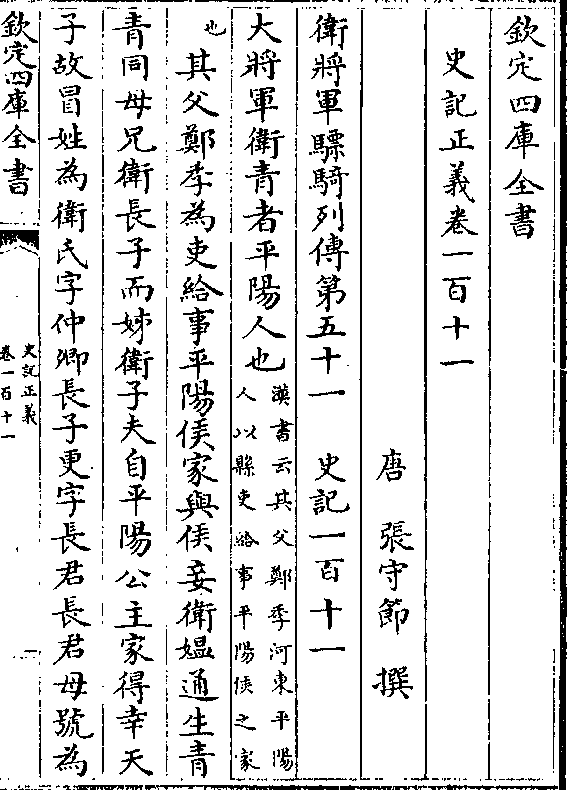 欽定四庫全書
史記正義卷一百十一
唐 張守節 撰
衛將軍驃騎列傳第五十一 史記一百十一
大將軍衛青者平陽人也漢書云其父鄭季河東平陽
人以縣吏給事平陽侯之家
也其父鄭季為吏給事平陽侯家與侯妾衛媼通生青
青同母兄衛長子而姊衛子夫自平陽公主家得幸天
子故冒姓為衛氏字仲卿長子更字長君長君母號為
欽定四庫全書
史記正義
卷一百十一
一